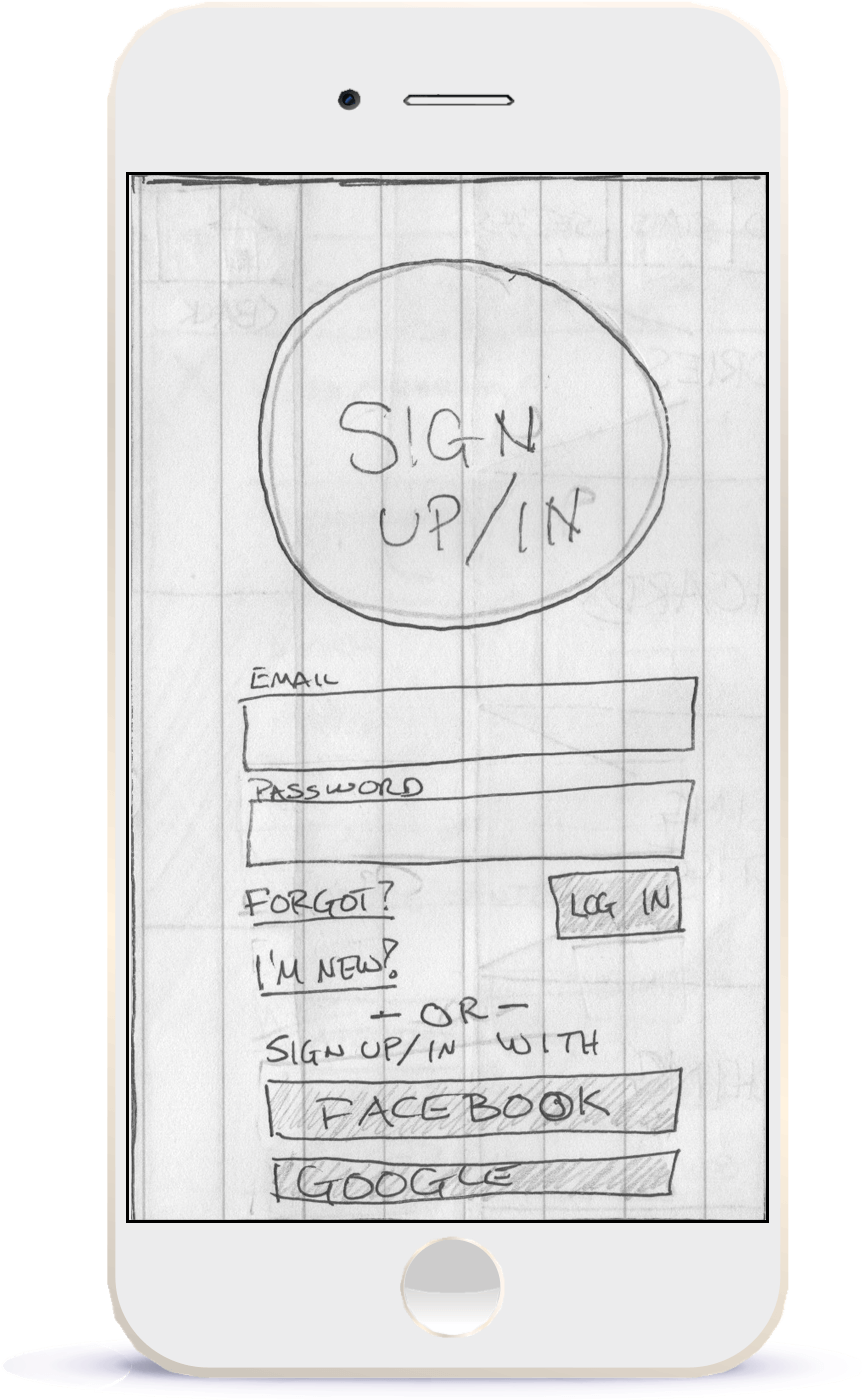 SIGN
UP/IN
EMAIL
PASSWORD
FORGOT?
LOG IN
I'M NEW?
- OR -
SIGN UP/IN WITH
FACEBOOK
GOOGLE